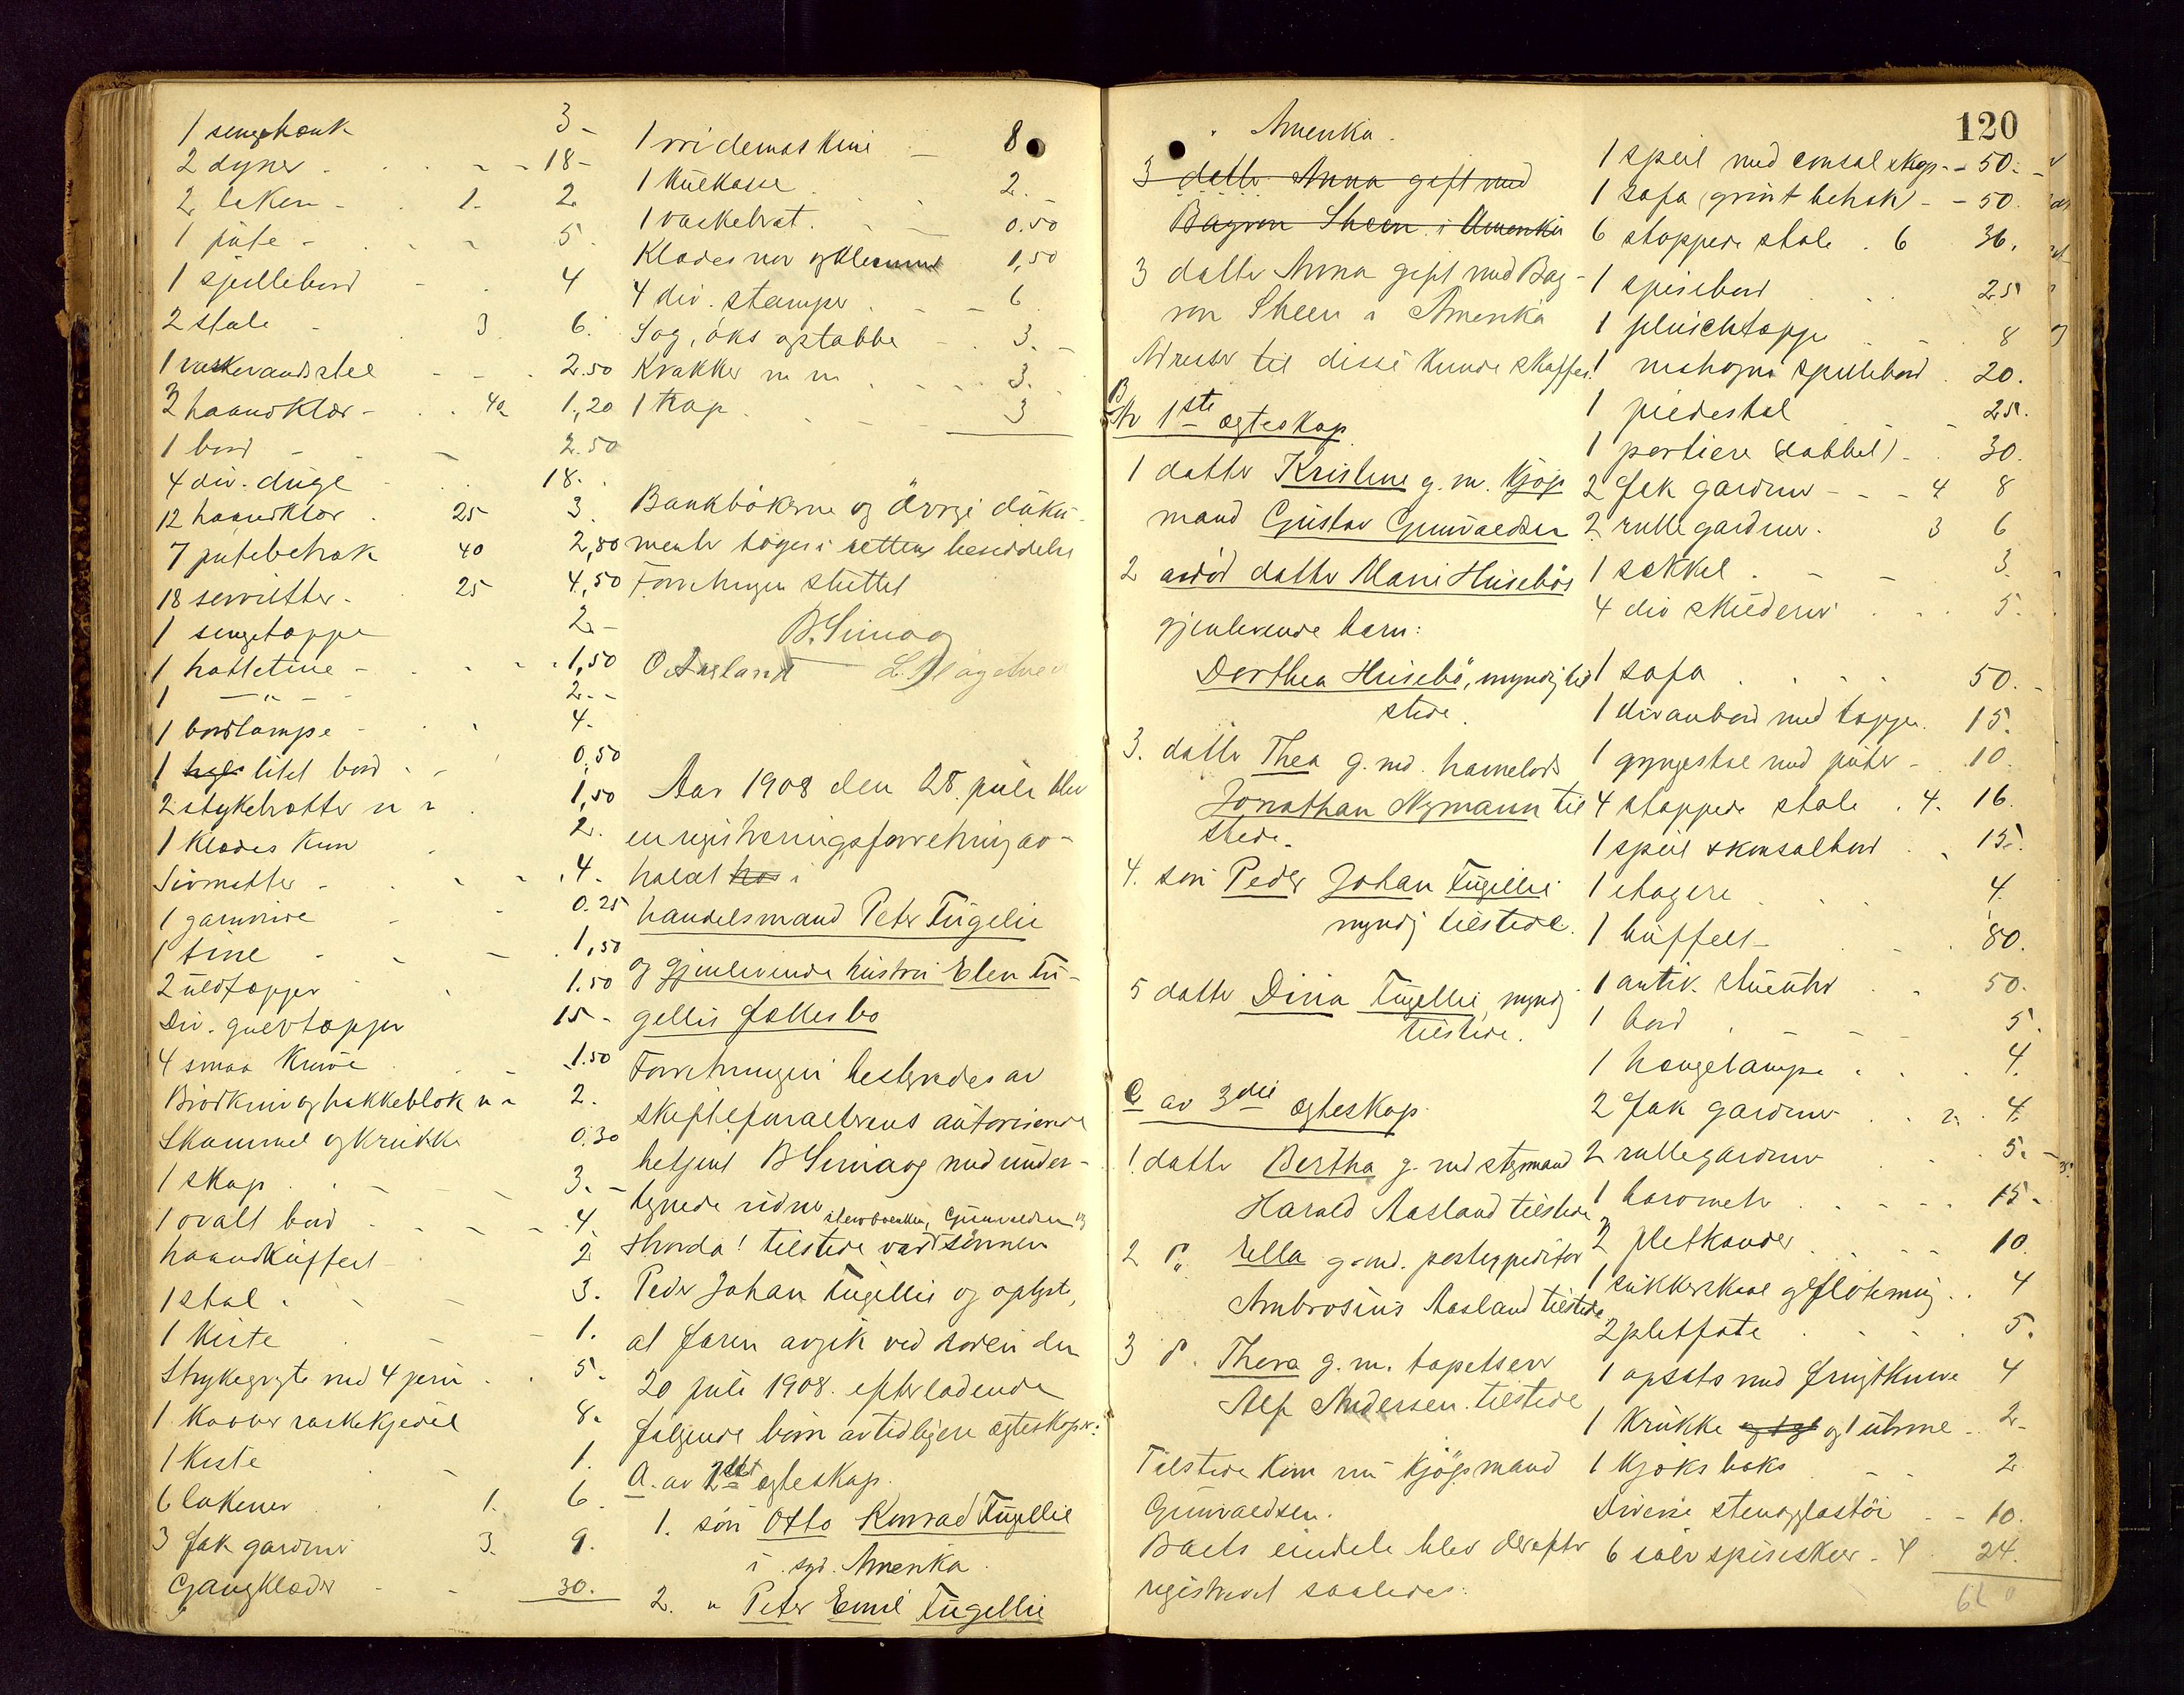 1 sengebænk 3 -
2 dyner 18 -
2 laken - 1. 2
1 pute - 5.
1 spillebord 4
2 stole 3. 6.
1 vaskevandstel 2.50
3 haandklær - 40 1,20
1 bord 2.50
4 div. duge 18.
12 haandklær 25 3.
7 putebetræk 40 2,80
18 servietter - 25 4,50
1 sengetæppe 2 -
1 hattetine - 1,50
1 — " — 2 -
1 bordlampe - 4 -
1 litet bord 0,50
2 1,50
1 klædes 2.
Sivmatter - 4 -
1 0.25
1 tine 1,50
2 uldtæpper 1.50
Div. gulvtæpper 15 -
4 smaa knive 1.50
Brødkniv og hakkeblok 2.
Skammel og krukke 0.30
1 skap 3. -
1 ovalt bord 4
haandkuffert 2
1 stol 3.
1 kiste 1.
Strykegryte med 4 jern 5 -
1 kobber vaskekjedel 8.
1 kiste 1.
6 lakener 1. 6.
3 fak gardiner 3. 9.
Gangklæder - 30.
1 vridemaskine 8
1 kulkasse 2.
1 vaskebræt 0.50
Klædesnor og klemmer 1,50
4 div. stamper 6
Sag, øks og stabbe 3.
Krakker m m 3.
1 trap 3
Bankbøkerne og øvrige doku-
menter toges i rettens besiddelse
Forretningen sluttet
B. Simaog
O. Aasland
Aar 1908 den 28. juli blev
en registreringsforretning av-
holdt hos i
handelsmand Peter Tugelie
og gjenlevende hustru Elen Tu-
gellis fællesbo
Forretningen bestyredes av
skifteforvalterens autoriserede
betjent B Simaog med under-
tegnede vidner
Tilstede var sønnen
Peder Johan Tugellie og oplyste,
at faren avgik ved døden den
20 juli 1908. efterladende
følgende børn av tidligere egteskaper:
A. av 2det egteskap.
1. søn Otto Konrad Tugellie
i syd. Amerika
2. " Peter Emil Tugellie
120
i Amerika.
3 datter Anna gift med
Bagron Skeen i Amerika
3 datter Anna gift med Bag-
ron Skeen i Amerika
Adresser til disse kunde skaffes.
B
Av 1ste egteskap
1 datter Kristine g. m. kjøp
mand Gustav Gunvaldsen
2 avdød datter Marie Husebøs
gjenlevende barn:
Dorthea Husebø, myndig til
stede.
3. datter Thea g. md.
Jonathan Nymann til
stede.
4. søn Peder Johan Tugellie
myndig tilstede.
5 datter Dina Tugellie, myndig
tilstede.
C av 3die egteskap.
1. datter Bertha g. md styrmand
Harald Aasland tilstede
2 do. Ella g. md. postexpeditør
Ambrosius Aasland tilstede
3 do. Thora g. m. tapetserer
Alf Andersen. tilstede
Tilstede kom nu kjøpmand
Gunvaldsen.
Boets eiendele blev derefter
registreret saaledes:
1 speil med consol skap - - 50.
1 sofa (grønt betræk) - - 50.
6 stoppede stole . 6 36.
1 spisebord 25
1 plüschtæppe 8
1 mahogni spillebord 20.
1 piedestal 25.
1 portiere (dobbel) - 30.
2 fak gardiner - - - 4 8
2 rullegardiner. 3 6
1 sokkel 3.
4 div skilderier 5.
1 sofa 50. -
1 divanbord med tæppe 15.
1 gyngestol med puter - 10.
4 stoppede stole . 4. 16.
1 speil & konsolbord 15.
1 etagere 4.
1 buffett - 80.
1 antik. stueuhr 50.
1 bord 5.
1 hengelampe 4.
2 fak gardiner 2. 4.
2 rullegardiner 5. -
1 barometer 15 -
2 pletkander 10.
1 sukkerskaal og fløtemug 4
2 pletfate 5.
1 opsats med frugtknive 4
1 krukke og 1 2 -
1 kjøks boks 2
Diverse sten og glastøi 10.
6 sølv spiseskeer - 4 24.